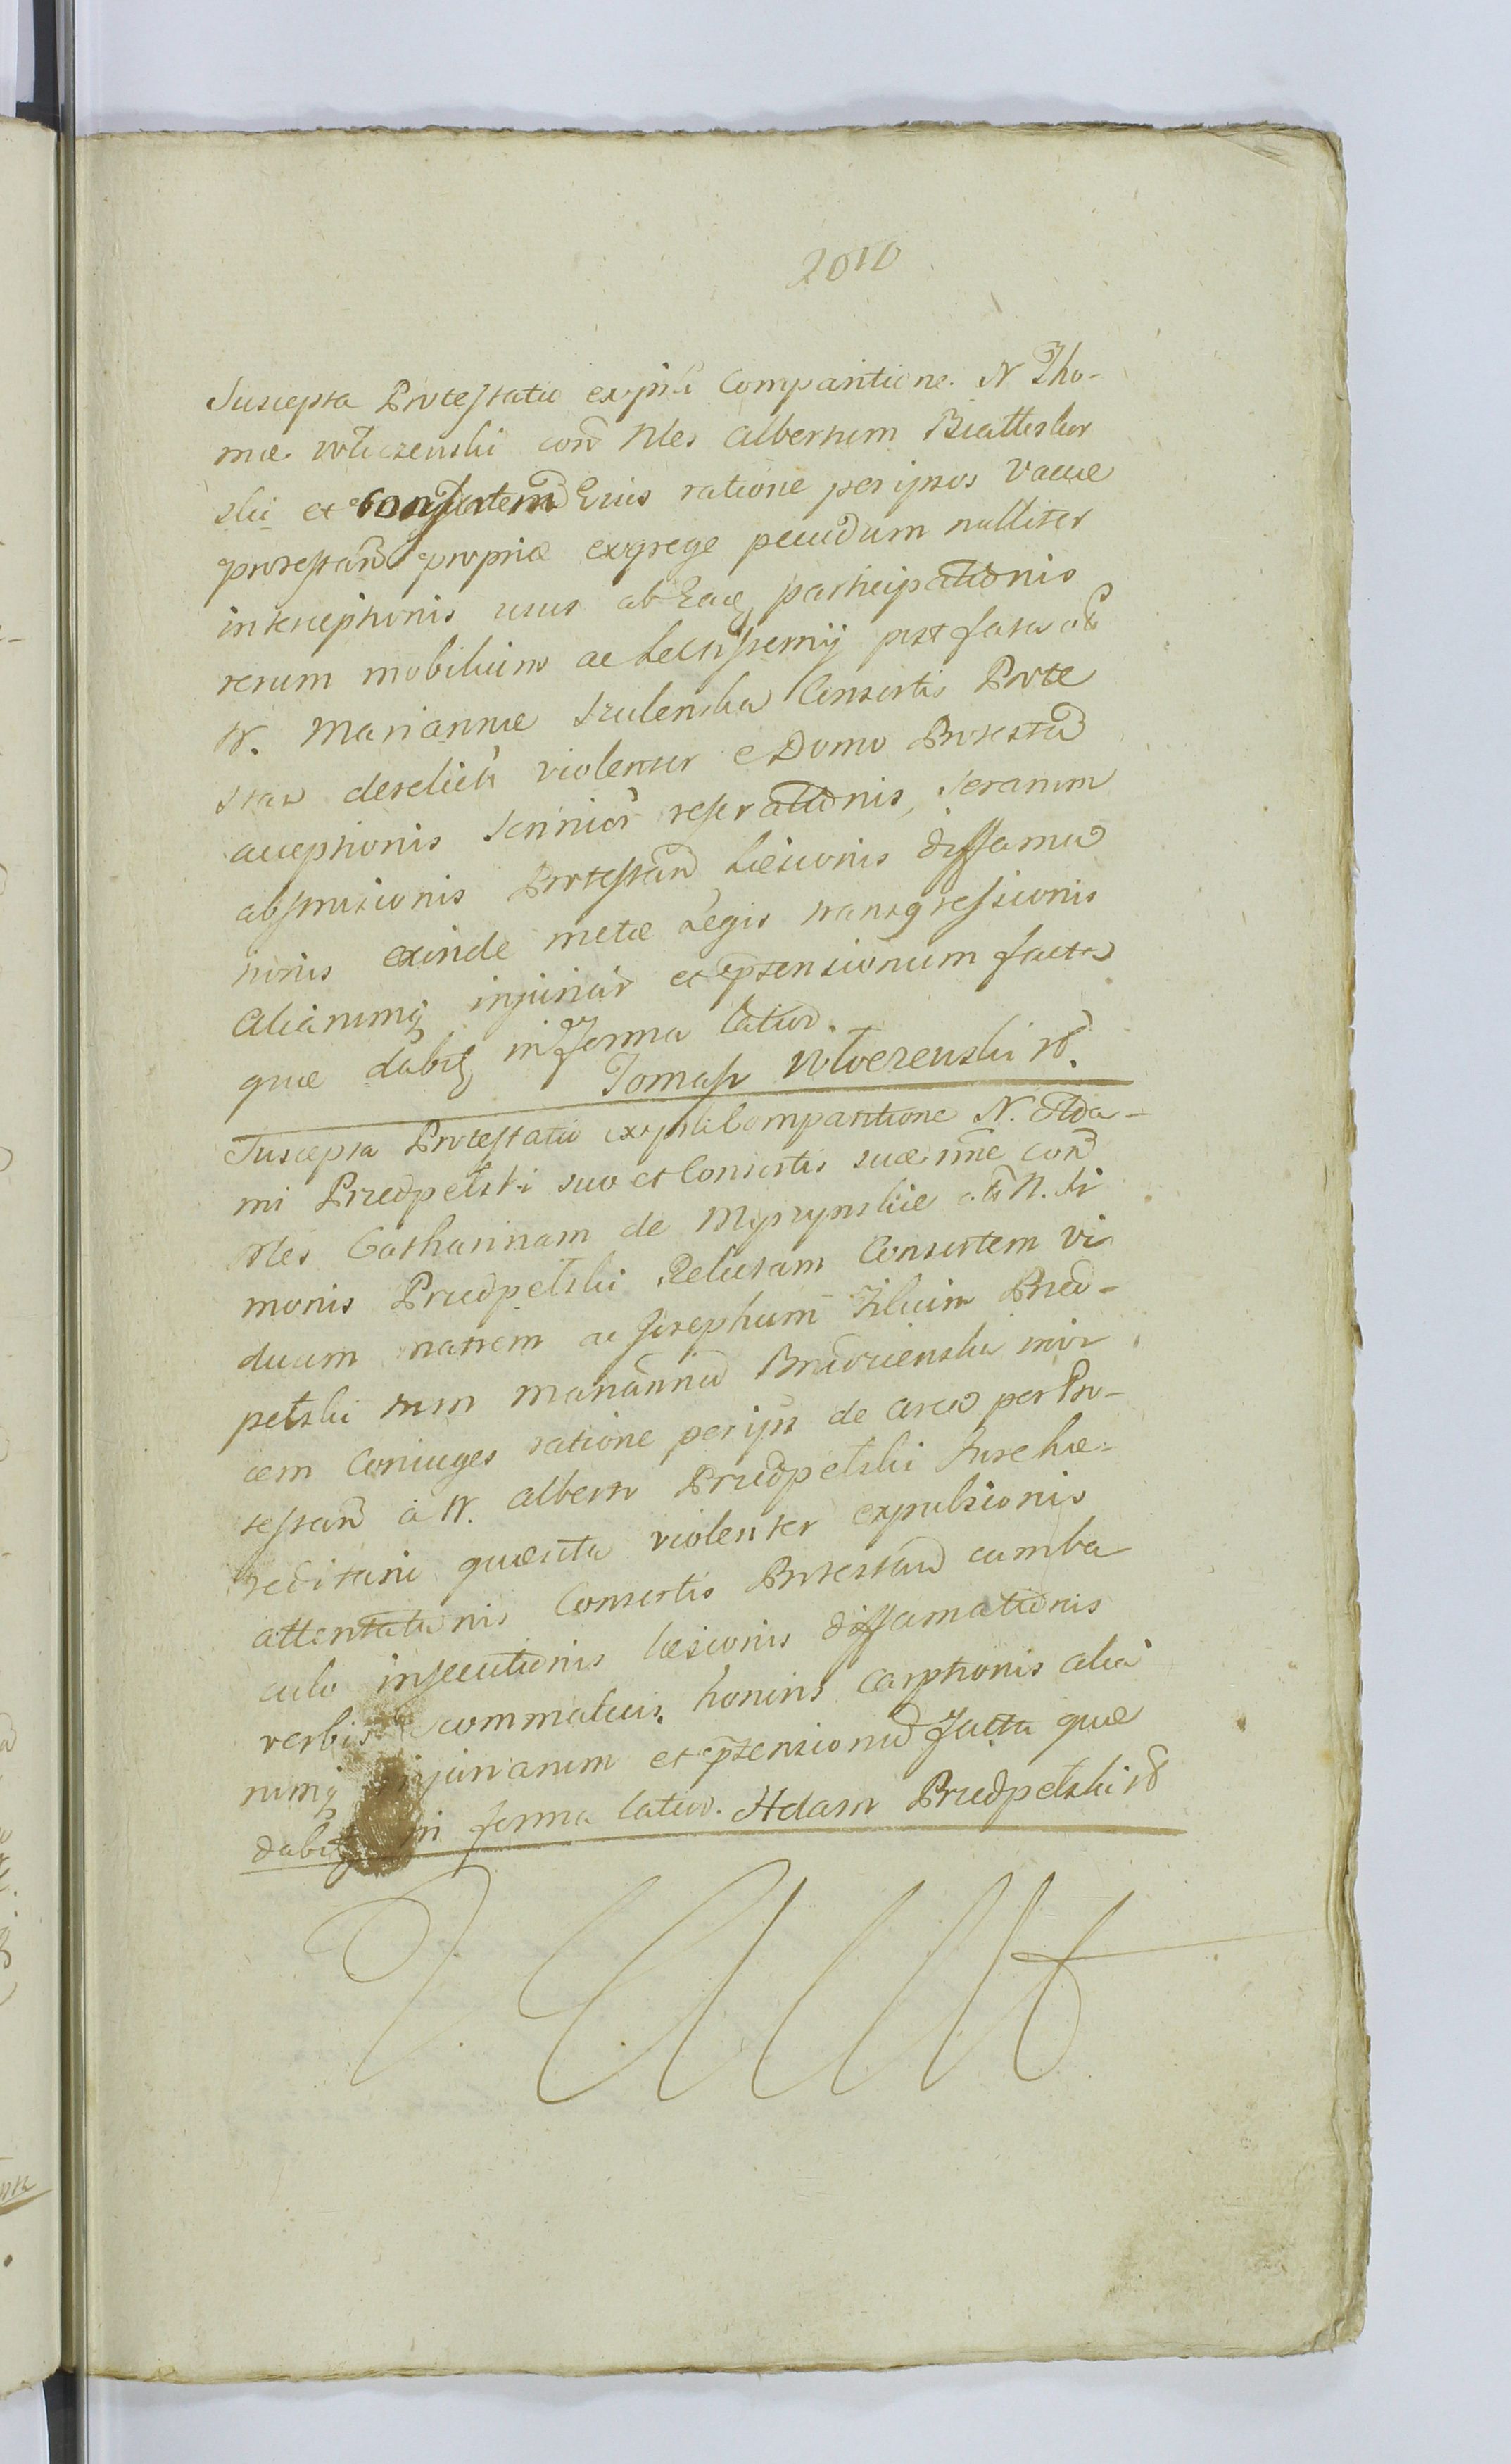 2010
Suscepta Protestatio ex psli Comparitione N Tho-
mæ Włoczewski con Nles Albertum Białłeskur
ski et Consortem Eius ratione per ipsos Vaccæ
protestan propriæ ex grege pecudum nulliter
interceptionis usus ab Eaq participationis
rerum mobilium ac Lectisternij post fata olim
N. Mariannæ Szulenska Consortis Prote
stan derelict violenter e Domo Protestan
acceptionis Scrinior reserationis, Serarum
abstrusionis Protestan Læsionis diffama
tionis exinde metæ Legis transgressionis
Aliarumq injuriar et prtensionum facta
quæ dabitq in forma latior.
Tomasz Włoczewski m
Suscepta Protestatio ex psli Comparitione N. Ada-
mi Przedpełski suo et Consortis suæ nne con
Nles Catharinam de Mystynskie olim N. Si
monis Przedpełski Relictam Consortem Vi
duam matrem ac Josephum Filium Przed-
pełski tum Mariannam Brudzienska invi
cem Coniuges ratione per ipsos de area per Pro-
testan à N. Alberto Przedpełski Jure hæ-
reditario quæsita violenter expulsionis
attentationis Consortis Protestan cum ba
culo insecutionis læsionis diffamationis
verbis scommaticis, honoris carptionis alia
rumq injuriarum et prtensionum facta quæ
dabitq in forma latior. Adam Przedpełski m